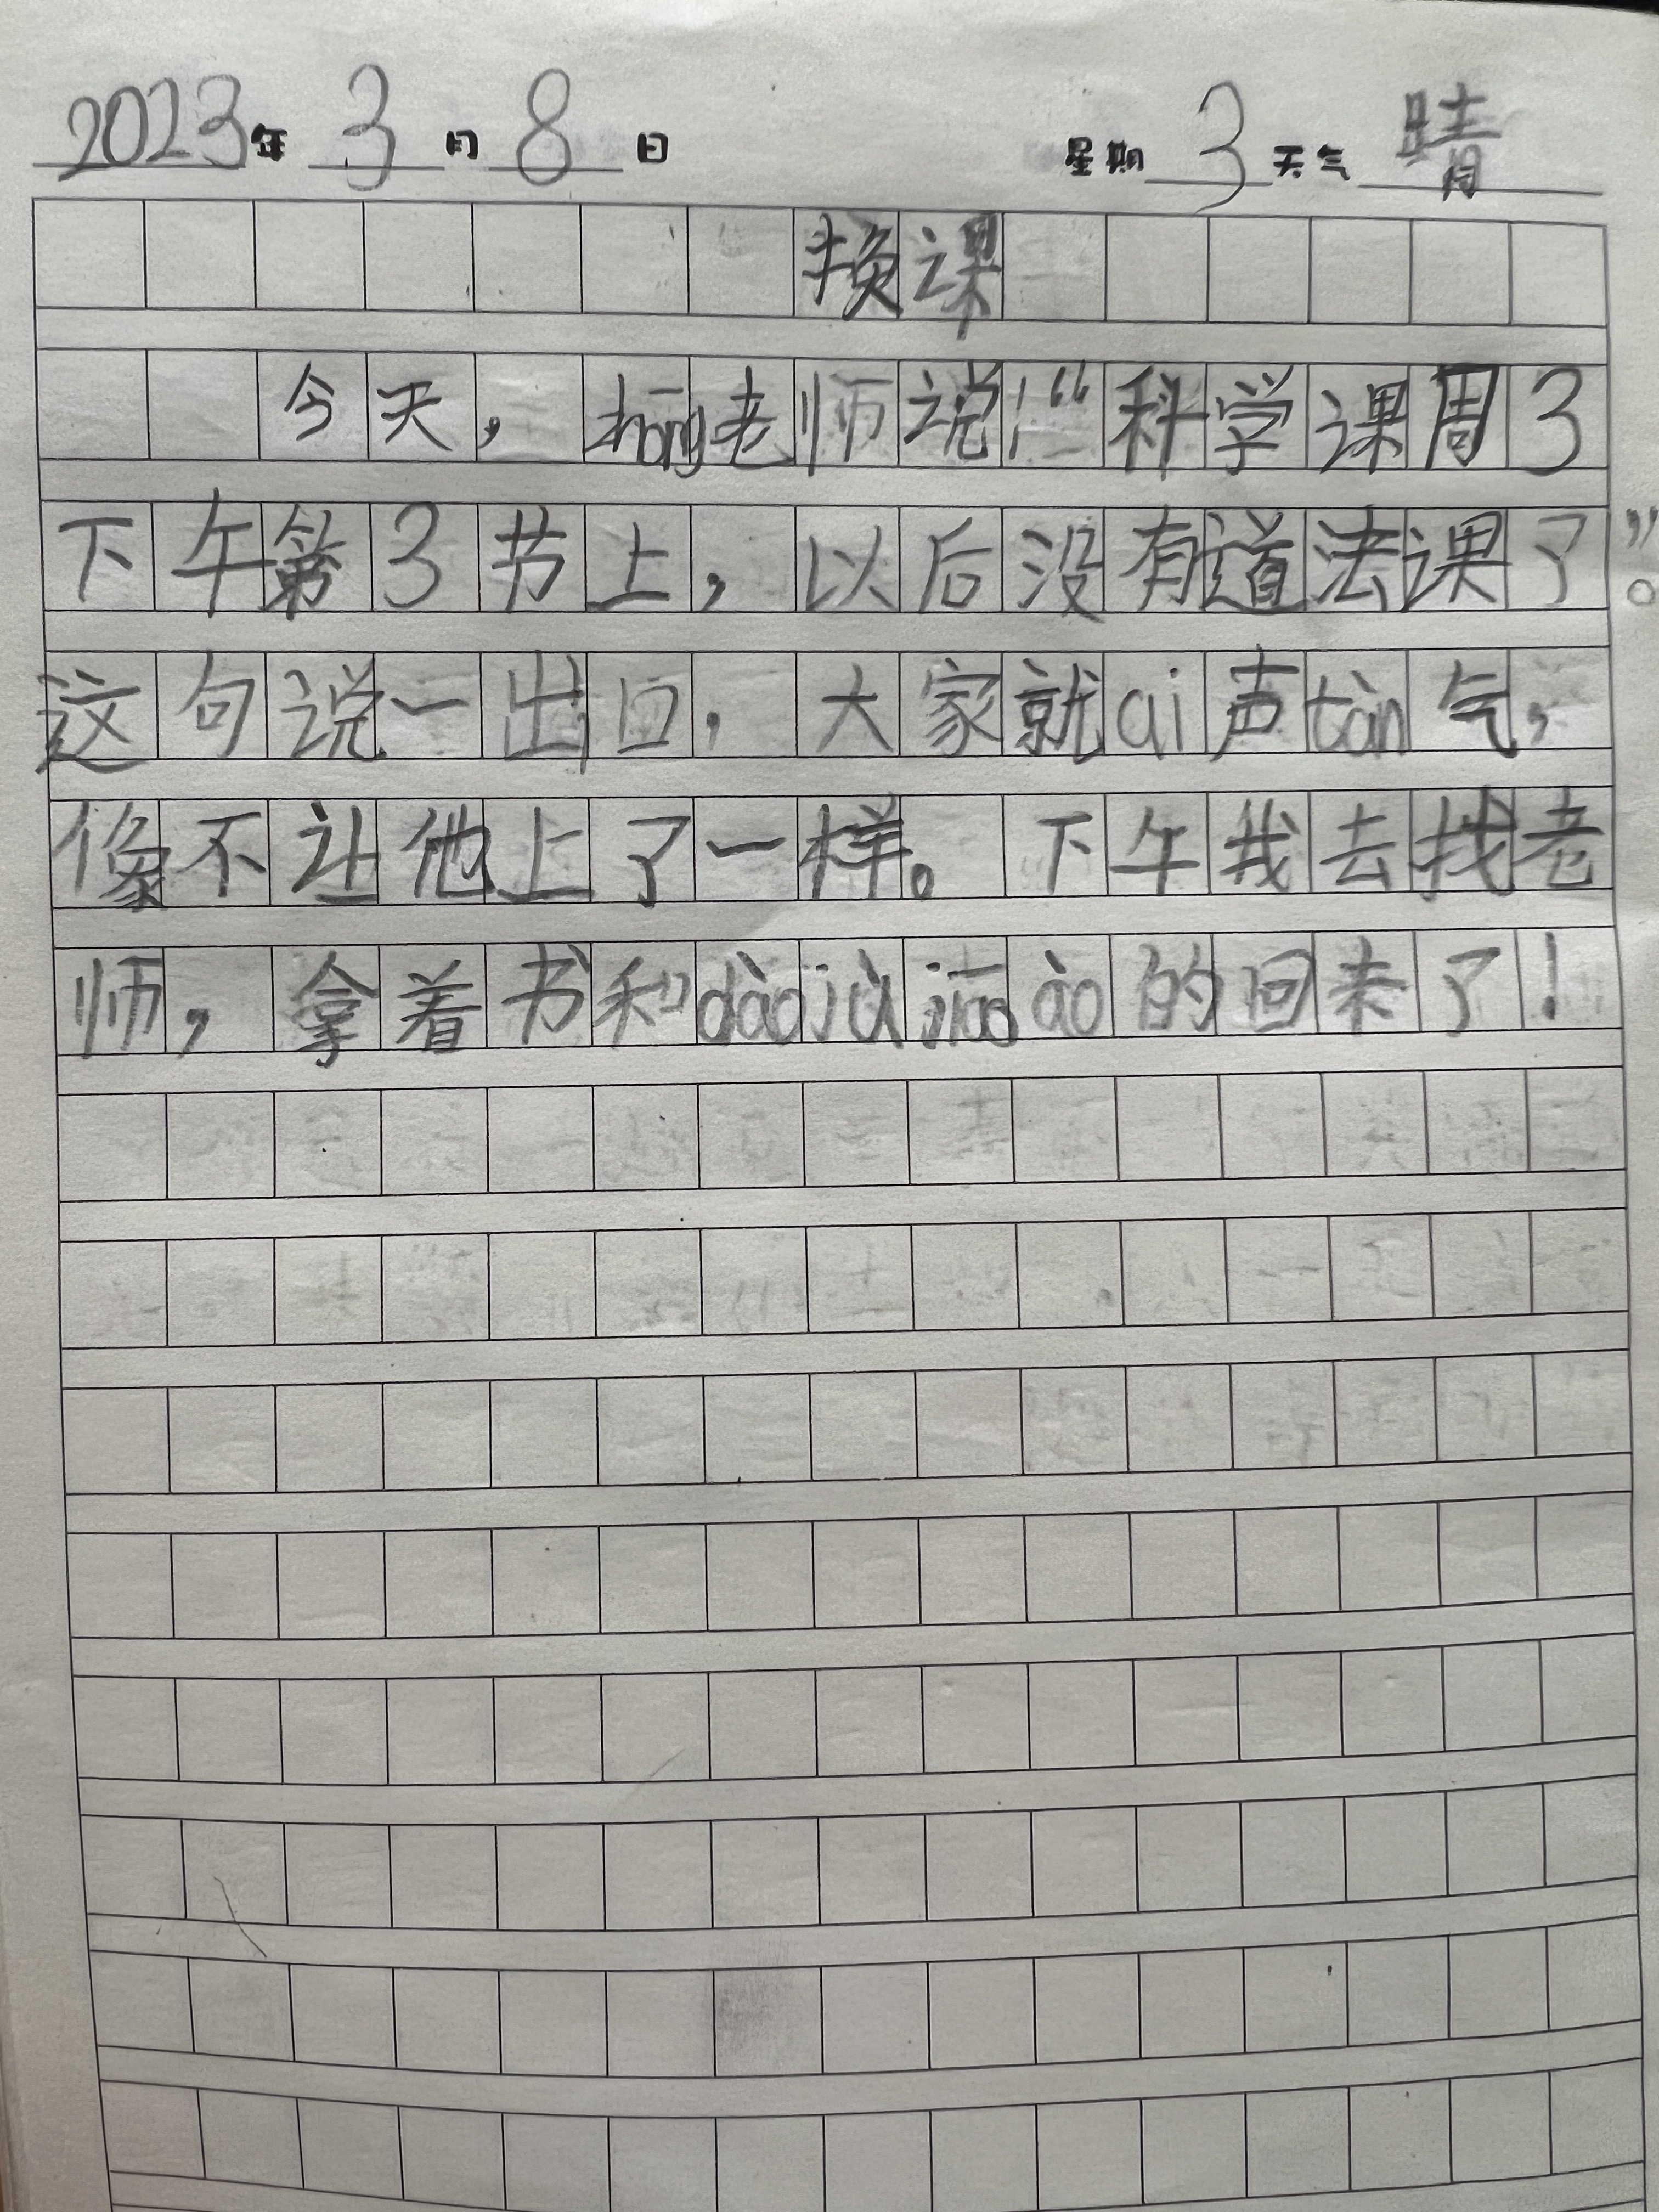 2023年 3月 8日 星期3 天气晴
换课
今天，zhōng老师说：“科学课周3
下午第3节上，以后没有道法课了”。
这句说一出口，大家就ai声tàn气，
像不让他上了一样。下午我去找老
师，拿着书和dàojùjiāoào的回来了！